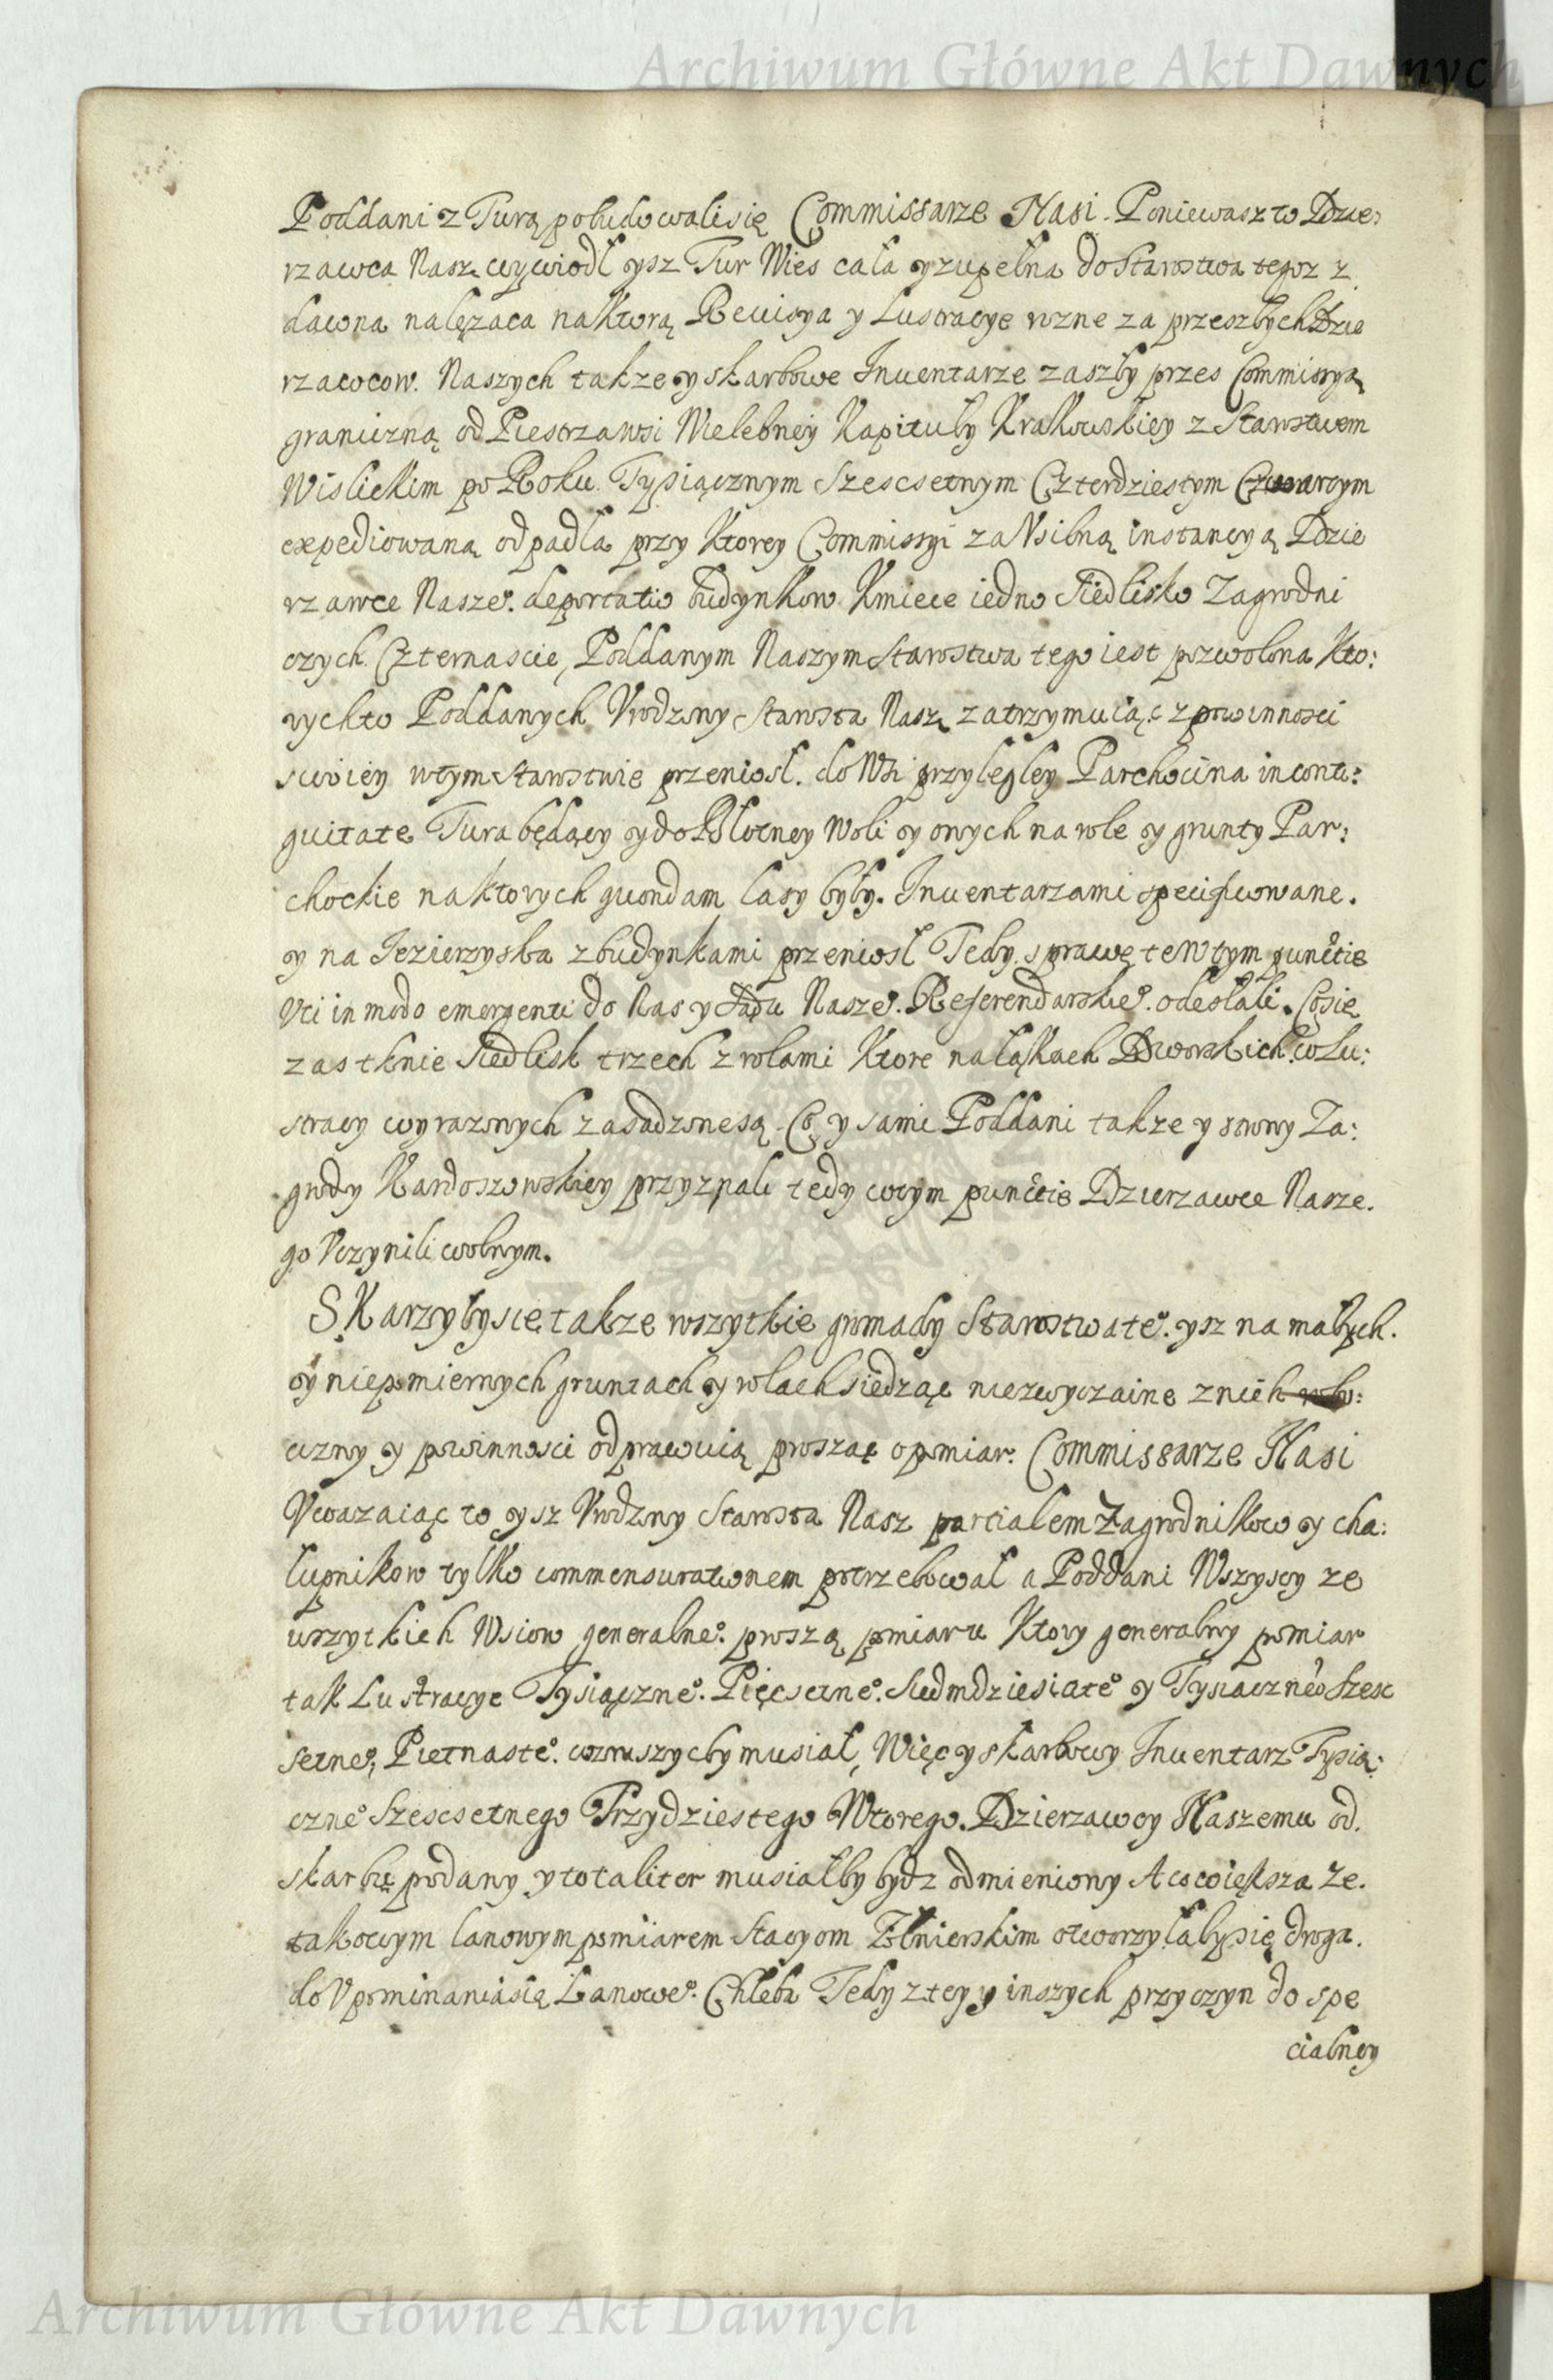 Archiwum Główne Akt Dawnych
Poddani z Turą pobudowali się Commissarze Nasi. Poniewasz to Dzie:
rzawca Nasz wywiodł ysz Tur Wies cała y zupełna do Starostwa tegoz z
dawna nalęzaca na ktorą Rewisya y Lustracye rozne za przeszłych Dzie
rzawcow Naszych takze y skarbowe Inwentarze zaszły przes Commissyą
graniczną od Piestrzawsi Wielebney Kapituły Krakowskiey z Starostwem
Wislickim po Roku Tysiącznym Szescsetnym Czterdziestym Czwartym
expediowaną odpadła przy ktorey Commissyi za Vsilną instancyą Dzie
rzawce Nasze°. deportatio budynkow Kmiece iedno Siedlisko Zagrodni
czych Czternascie, Poddanym Naszym Starostwa tego iest pozwolona Kto:
rychto Poddanych Vrodzony Starosta Nasz zatrzymuiąc z powinnosci
swoiey w tym Starostwie przeniosł. do Wsi przyległey Parchocina in conti:
guitate Tura będący y do Błotney Woli y onych na role y grunty Par:
chockie na ktorych quondam lasy były. Inwentarzami specificowane.
y na Iezierzyska z budynkami przeniosł Tedy sprawę te w tym punctie
Vti in modo emergenti do Nas y Sądu Nasze°. Referendarskie°. odesłali. Co się
zas tknie Siedlisk trzech z rolami Ktore na łąkach Dworskich w Lu:
stracy wyrazonych zasadzone są. Co y sami Poddani takze y strony Za:
grody Kardoszowskiey przyznali tedy w tym punctie Dzierzawce Nasze.
go Vczynili wolnym.
Skarzyły się takze wszytkie gromady Starostwa te°. ysz na małych.
y niepomiernych gruntach y rolach siedząc niezwyczaine z nich robo:
cizny y powinnosci odprawuią prosząc o pomiar. Commissarze Nasi
Vwazaiąc to ysz Vrodzony Starosta Nasz partialem Zagrodnikow y cha:
łupnikow tylko commensurationem potrzebował a Poddani Wszyscy ze
wszytkich Wsiow generalne°. proszą pomiaru Ktory generalny pomiar
tak Lustracye Tysiączne°. Pięcsetne°. Siedmdziesiąte° y Tysiączne° Szesc
setne°, Pietnaste°. wzruszycby musiał, Więc y skarbowy Inwentarz Tysią:
czne° Szescsetnego Trzydziestego Wtorego. Dzierzawcy Naszemu od.
skarbu podany y totaliter musiałby bydz odmieniony A co większa ze.
takowym łanowym pomiarem Stacyom Zołnierskim otworzyłaby się droga.
do Vpominania się Łanowe°. Chleba Tedy z tey y inszych przyczyn do spe
cialney
Archiwum Główne Akt Dawnych